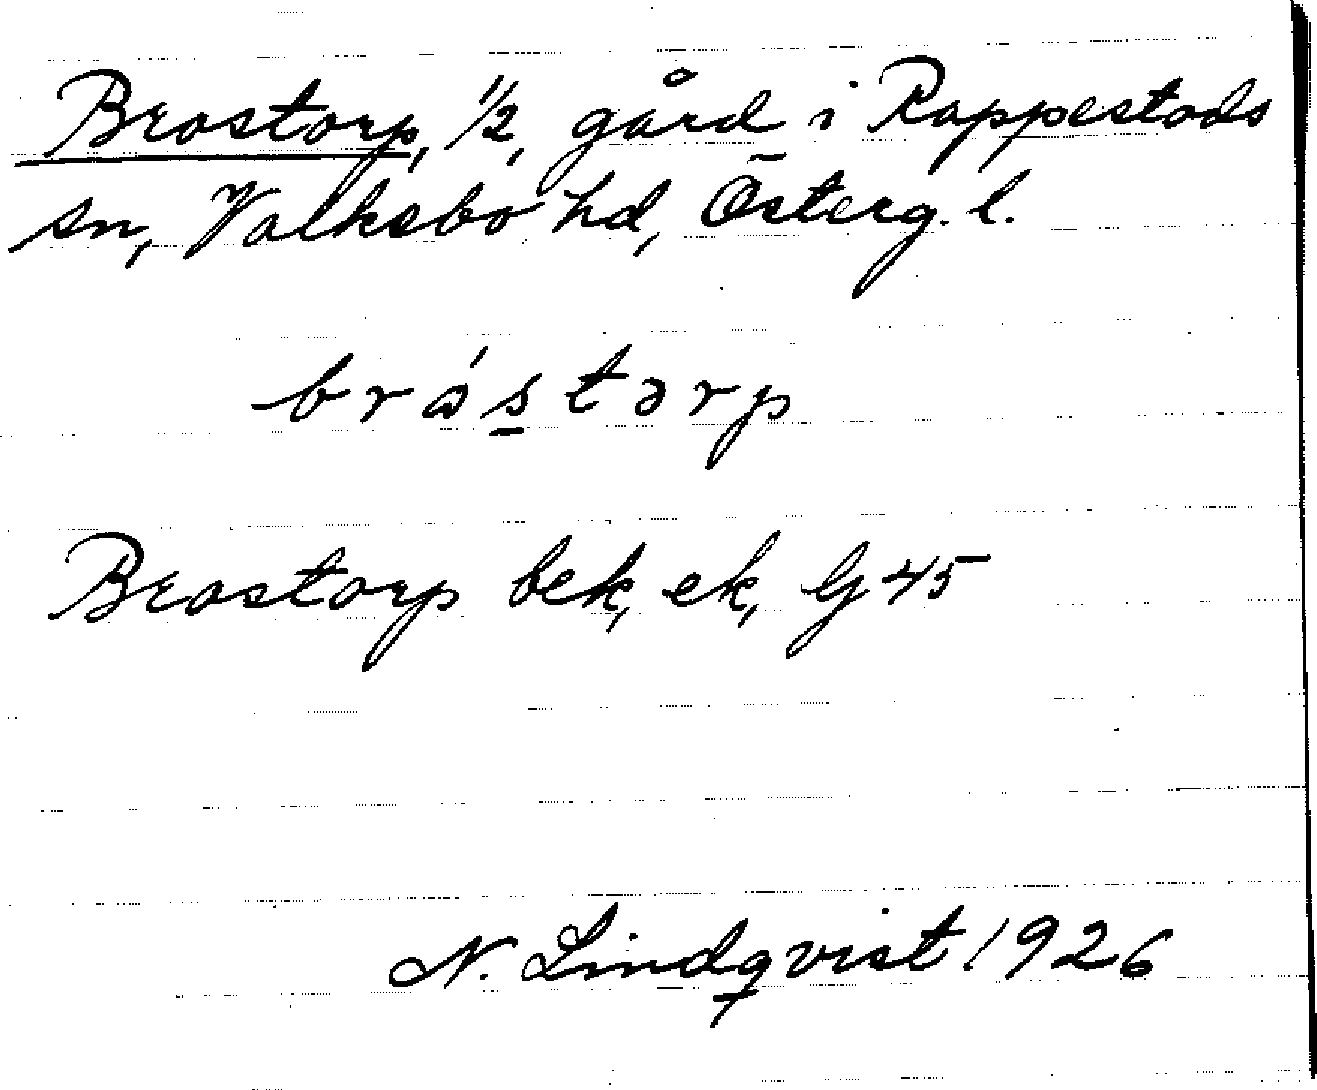 Brostorp, 1/2, gård i Rappestads
sn, Valkebo hd, Österg. l.
brǻstərp
Brostorp bek, ek, Gj 45
N. Lindqvist 1926